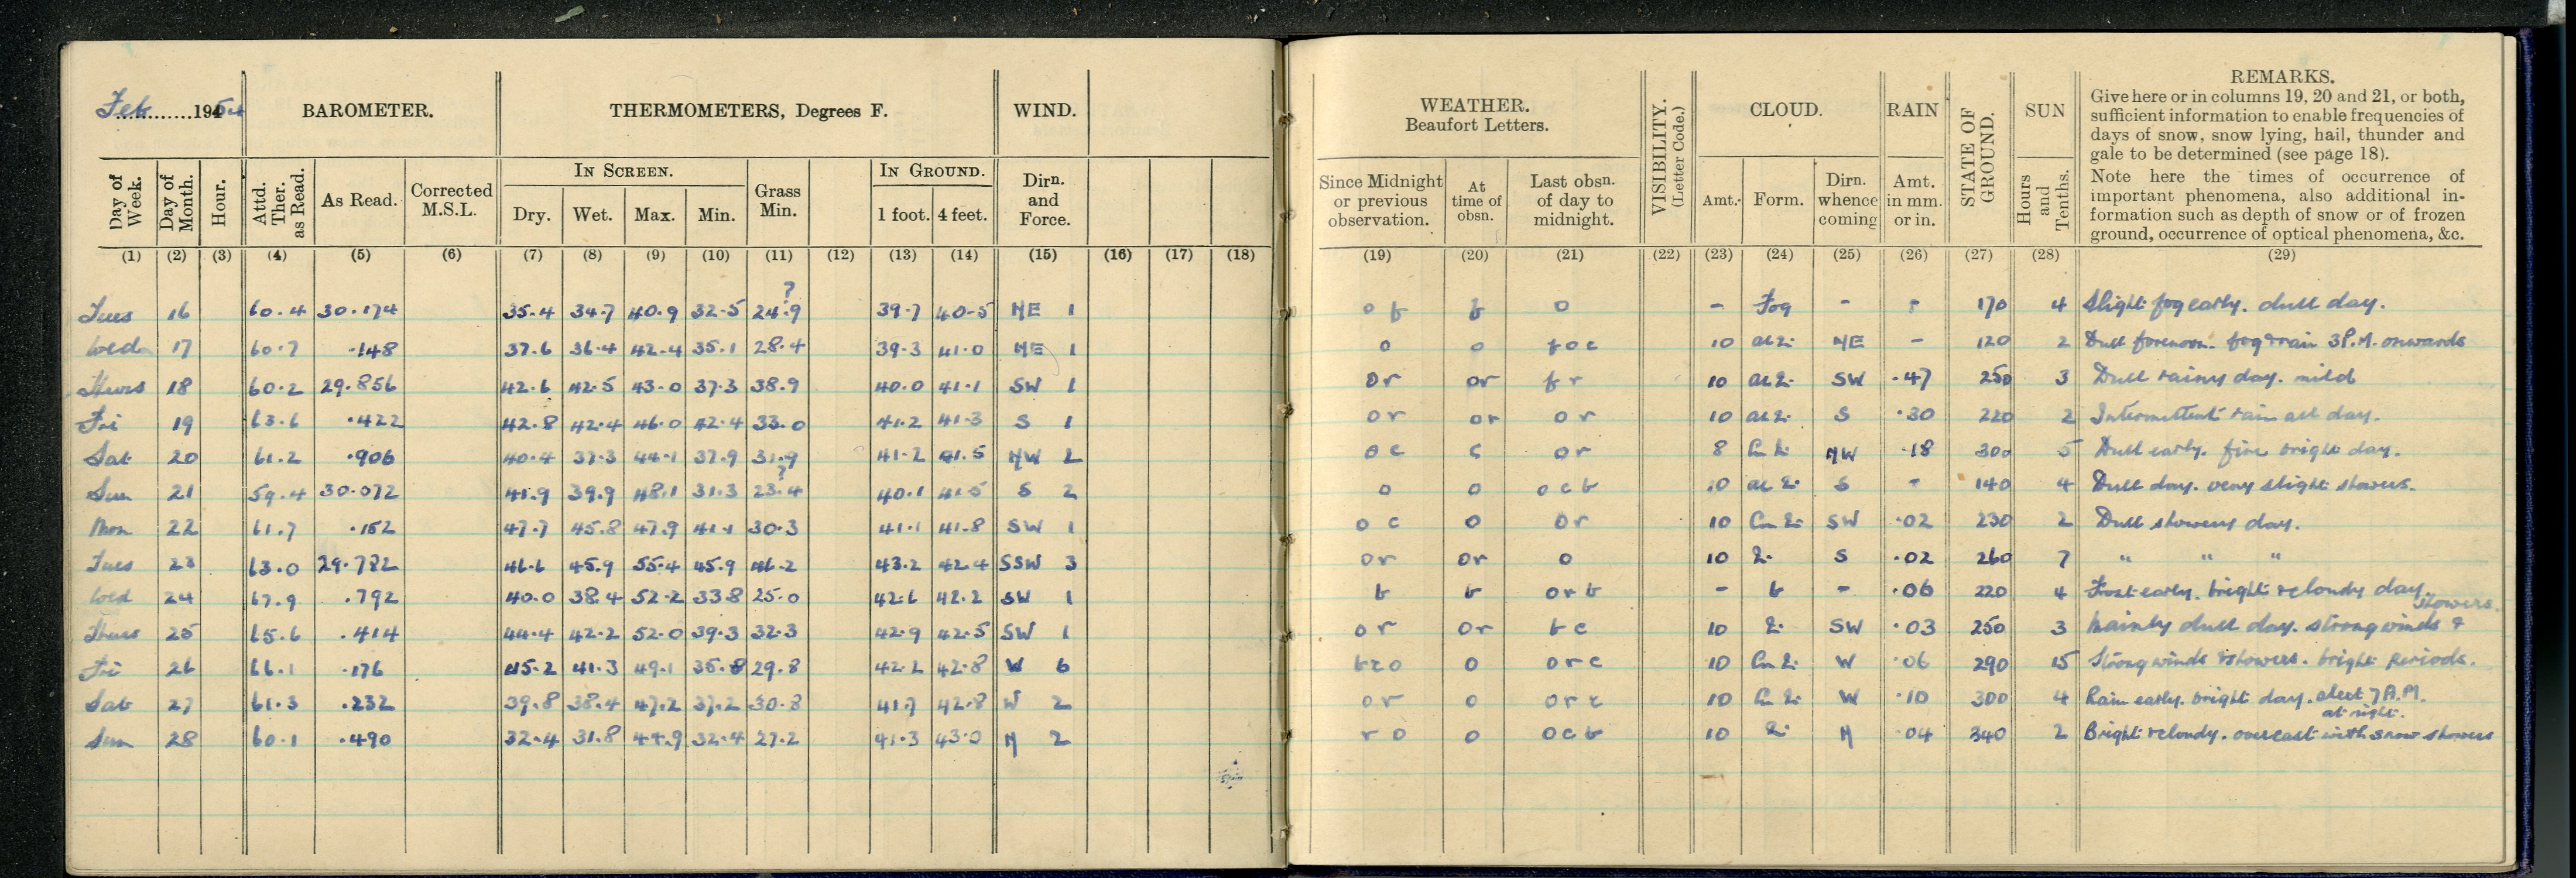 Feb 1954
BAROMETER.
THERMOMETERS, Degrees F.
WIND.
Day of Week.
Day of Month.
Hour.
Attd. Ther. as Read.
As Read.
Corrected M.S.L.
IN SCREEN.
Dry. Wet. Max. Min.
Grass Min.
IN GROUND.
1 foot. 4 feet.
Dirn. and Force.
(1) (2) (3) (4) (5) (6) (7) (8) (9) (10) (11) (12) (13) (14) (15) (16) (17) (18)
?
Tues 16 60.4 30.174 35.4 34.7 40.9 32.5 24.9 39.7 40.5 NE 1
Wed 17 60.7 .148 37.6 36.4 42.4 35.1 28.4 39.3 41.0 NE 1
Thurs 18 60.2 29.856 42.6 42.5 43.0 37.3 38.9 40.0 41.1 SW 1
Fri 19 63.6 .422 42.8 42.4 46.0 42.4 33.0 41.2 41.3 S 1
Sat 20 61.2 .906 40.4 37.3 44.1 37.9 31.9 41.2 41.5 NW 2
?
Sun 21 59.4 30.072 41.9 39.9 48.1 31.3 23.4 40.1 41.5 S 2
Mon 22 61.7 .152 47.7 45.8 47.9 41.1 30.3 41.1 41.8 SW 1
Tues 23 63.0 29.782 46.6 45.9 55.4 45.9 46.2 43.2 42.4 SSW 3
Wed 24 67.9 .792 40.0 38.4 52.2 33.8 25.0 42.6 42.2 SW 1
Thurs 25 65.6 .414 44.4 42.2 52.0 39.3 32.3 42.9 42.5 SW 1
Fri 26 66.1 .176 45.2 41.3 49.1 35.8 29.8 42.2 42.8 W 6
Sat 27 61.3 .232 39.8 38.4 47.2 37.2 30.8 41.7 42.8 W 2
Sun 28 60.1 .490 32.4 31.8 44.9 32.4 27.2 41.3 43.0 N 2
WEATHER.
Beaufort Letters.
Since Midnight or previous observation.
At time of obsn.
Last obsn. of day to midnight.
VISIBILITY.
(Letter Code.)
CLOUD.
Amt. Form.
Dirn. whence coming
RAIN
Amt. in mm. or in.
STATE OF GROUND.
SUN
Hours and Tenths.
REMARKS.
Give here or in columns 19, 20 and 21, or both,
sufficient information to enable frequencies of
days of snow, snow lying, hail, thunder and
gale to be determined (see page 18).
Note here the times of occurrence of
important phenomena, also additional in-
formation such as depth of snow or of frozen
ground, occurrence of optical phenomena, &c.
(19) (20) (21) (22) (23) (24) (25) (26) (27) (28) (29)
o f f o - Fog - 170 4 Slight fog early. dull day.
o o 10 NE - 120 2 Dull forenoon. fog & rain 3P.M. onwards
or or f r 10 SW .47 250 3 Dull rainy day. mild
or or or 10 S .30 220 2 Intermittent rain all day.
o c c or 8 NW .18 300 5 Dull early. fine bright day.
o o o c b 10 S - 140 4 Dull day. very slight showers.
o c o or 10 SW .02 230 2 Dull showery day.
or or o 10 S .02 260 7 " " "
b b o r b - b - .06 220 4 Frost early. bright & cloudy day.
showers.
or or b c 10 SW .03 250 3 Mainly dull day. strong winds &
b c o o o r c 10 W .06 290 15 Strong winds & showers. bright periods.
or o o r c 10 W .10 300 4 Rain early. bright day. 7 A.M.
at night.
r o o o c b 10 N .04 340 2 Bright & cloudy. overcast with snow showers